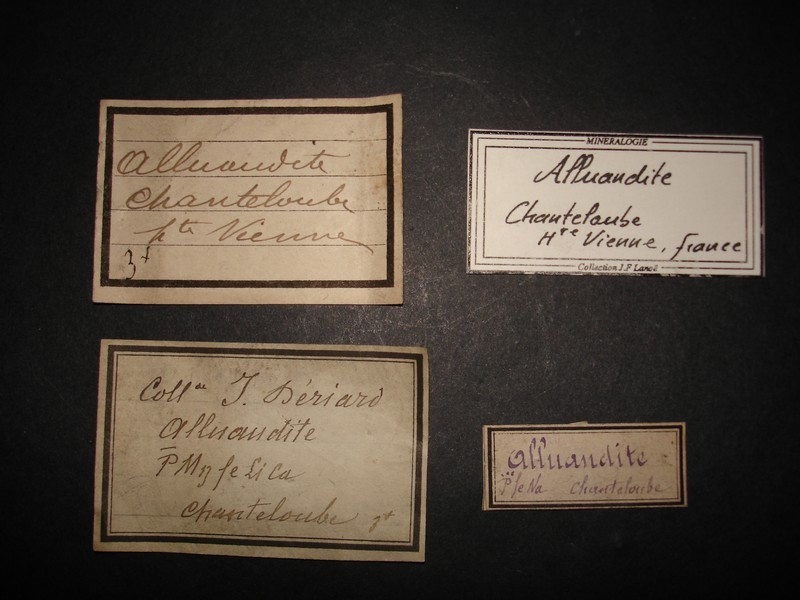 Alluandite
Chanteloube
hte Vienne
3f
MINERALOGIE
Alluandite
Chanteloube
Hte Vienne, france
Collection J.F Lanoë
Coll on J. Bériard
Alluandite
P Mg fe Li Ca
Chanteloube
Alluandite
P fe Na Chanteloube